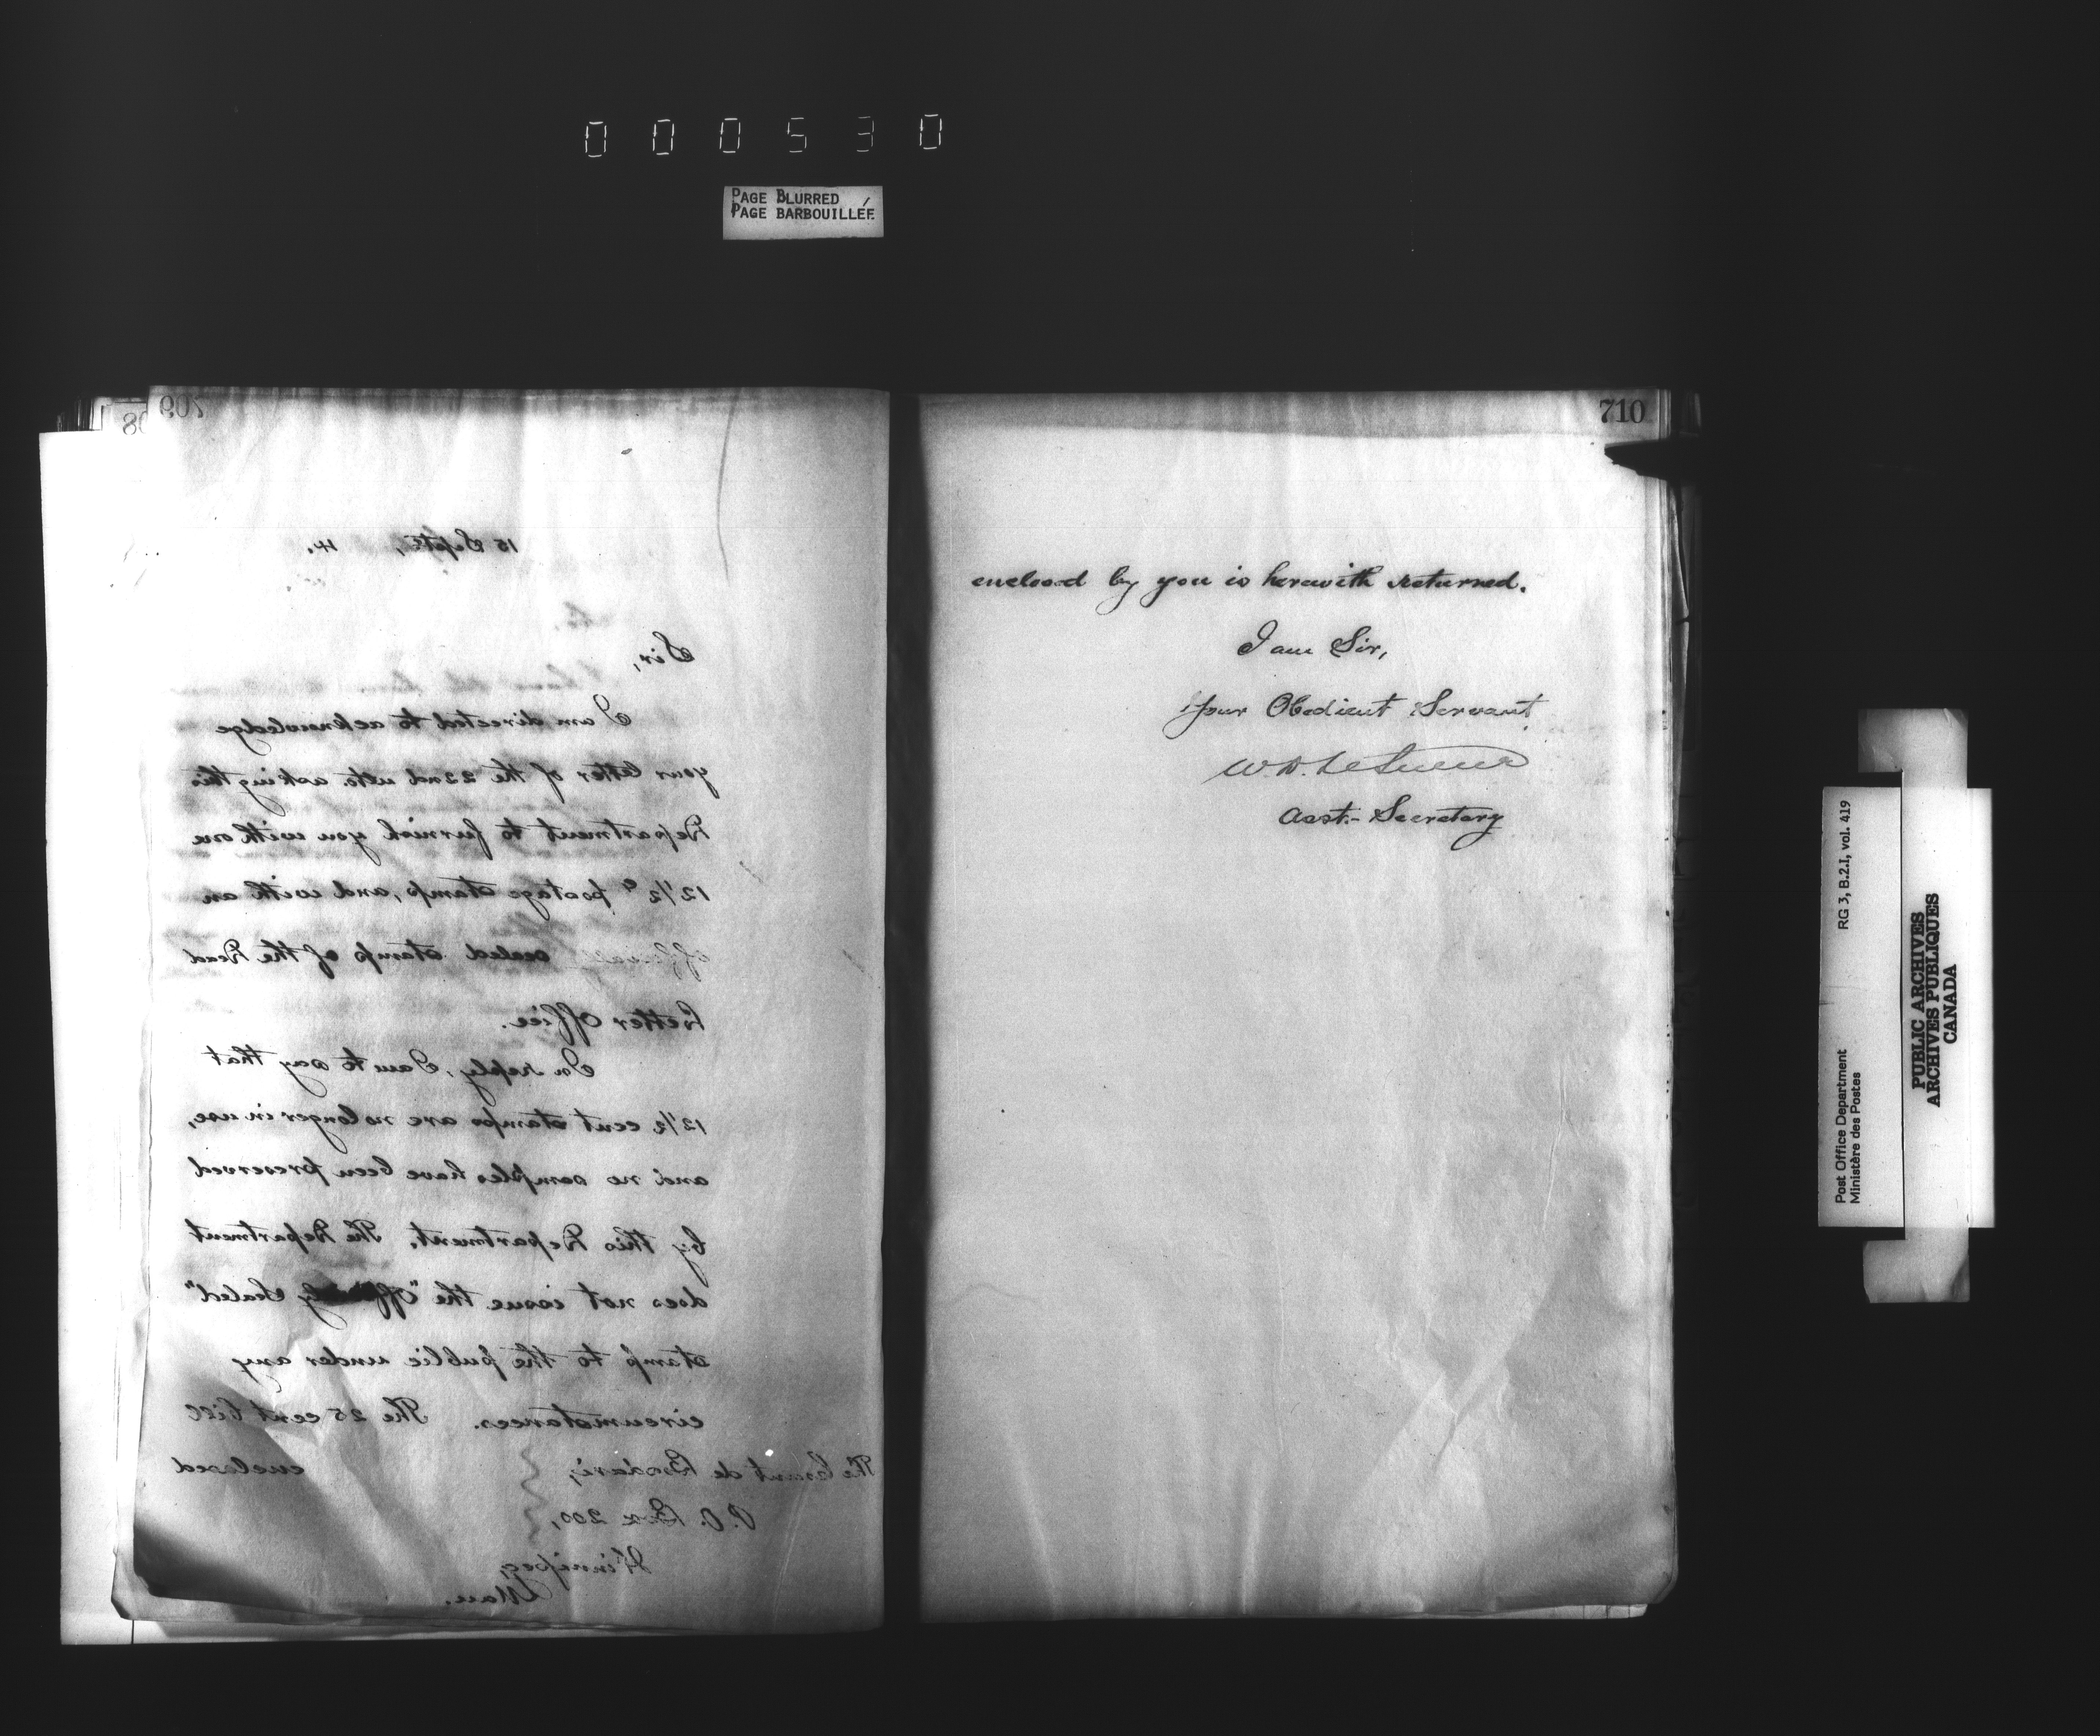 000530
PAGE BLURRED
PAGE BARBOUILLÉE
709
15 Septr, 4.
Sir,
I am directed to acknowledge
your letter of the 22nd ulto. asking this
Department to furnish you with one
12½ c postage stamp, and with an
sealed stamp of the Dead
Letter Office.
In reply, I am to say that
12½ cent stamps are no longer in use,
and no samples have been preserved
by this Department. The Department
does not issue the "Officially Sealed"
stamp to the public under any
circumstances. The 25 cent bill
enclosed
The Count de
P.O. Box 200,
Winnipeg,
Man.
710
enclosed by you is herewith returned.
I am Sir,
Your Obedient Servant
W.D. LeSueur
Asst.- Secretary
Post Office Department
Ministère des Postes
RG 3, B.2.1, vol. 419
PUBLIC ARCHIVES
ARCHIVES PUBLIQUES
CANADA